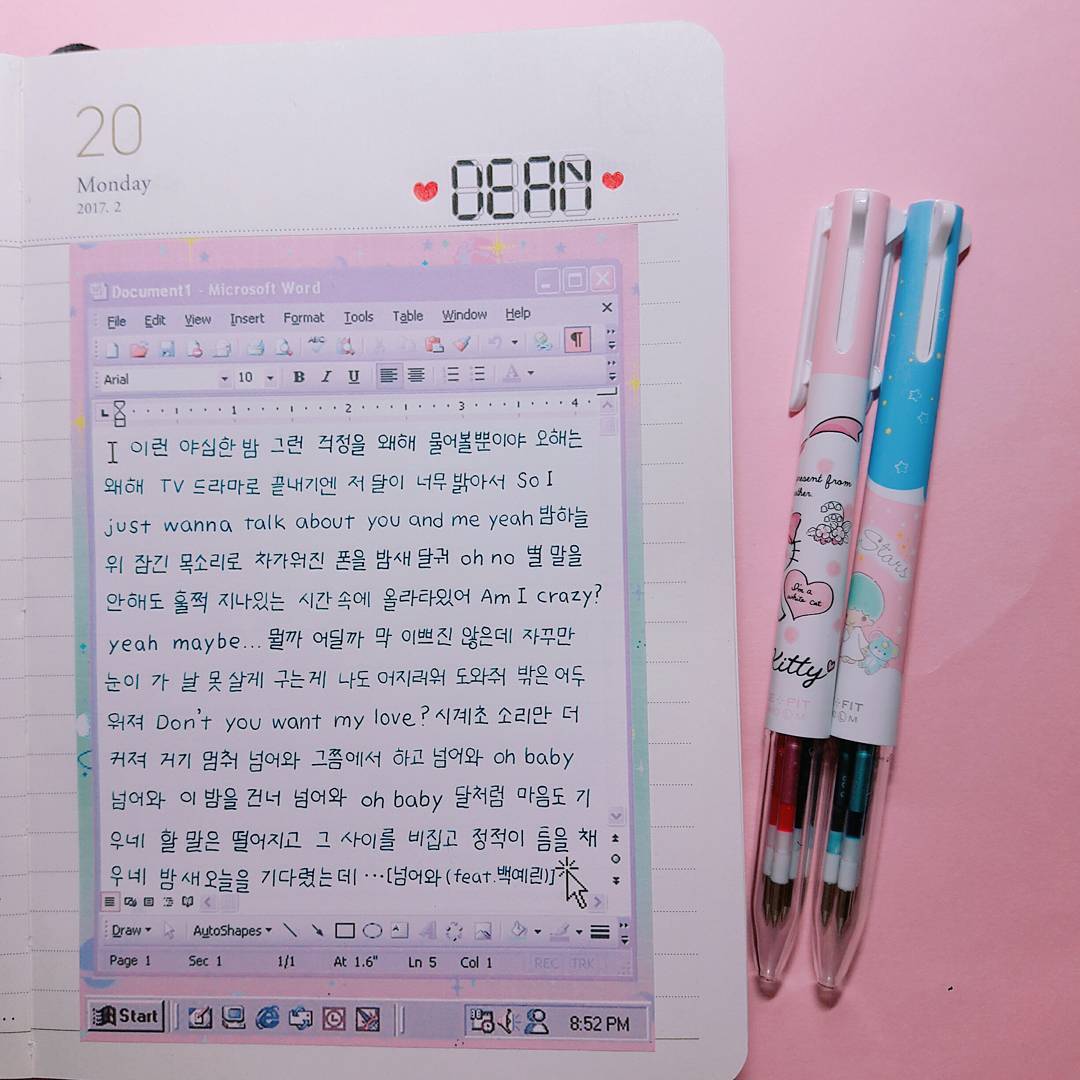 20
Monday
2017. 2
DEAN
Document1 - Microsoft Word
File Edit View Insert Format Tools Table Window Help
Arial 10 B I U A
1 2 3 4
이런 야심한 밤 그런 걱정을 왜해 물어볼뿐이야 오해는
왜해 TV 드라마로 끝내기엔 저 달이 너무 밝아서 So I
just wanna talk about you and me yeah 밤하늘
위 잠긴 목소리로 차가워진 폰을 밤새 달궈 oh no 별 말을
안해도 훌쩍 지나있는 시간 속에 올라타있어 Am I crazy?
yeah maybe... 뭘까 어딜까 막 이쁘진 않은데 자꾸만
눈이 가 날 못 살게 구는게 나도 어지러워 도와줘 밖은 어두
워져 Don't you want my love? 시계초 소리만 더
커져 거기 멈춰 넘어와 그쯤에서 하고 넘어와 oh baby
넘어와 이 밤을 건너 넘어와 oh baby 달처럼 마음도 기
우네 할 말은 떨어지고 그 사이를 비집고 정적이 틈을 채
우네 밤새 오늘을 기다렸는데 ...[넘어와(feat.백예린)]
Draw AutoShapes
Page 1 Sec 1 1/1 At 1.6" Ln 5 Col 1 REC TRK
Start 8:52 PM
present from
I'm a
white cat
Kitty
Stars
FIT
FIT